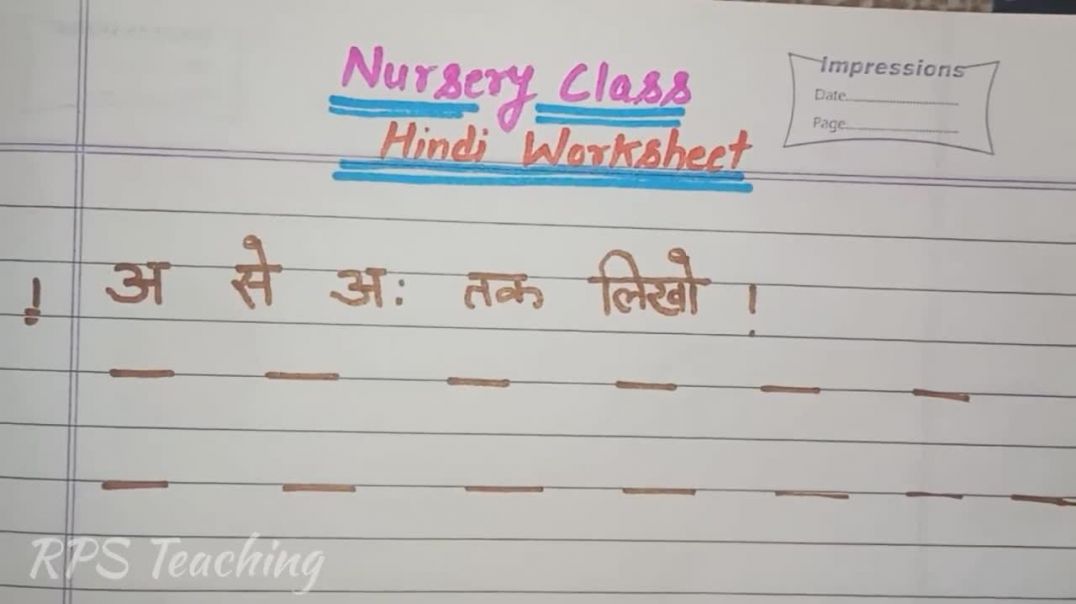 Nursery Class
Hindi Worksheet
Impressions
Date
Page
! अ से अः तक लिखो !
RPS Teaching